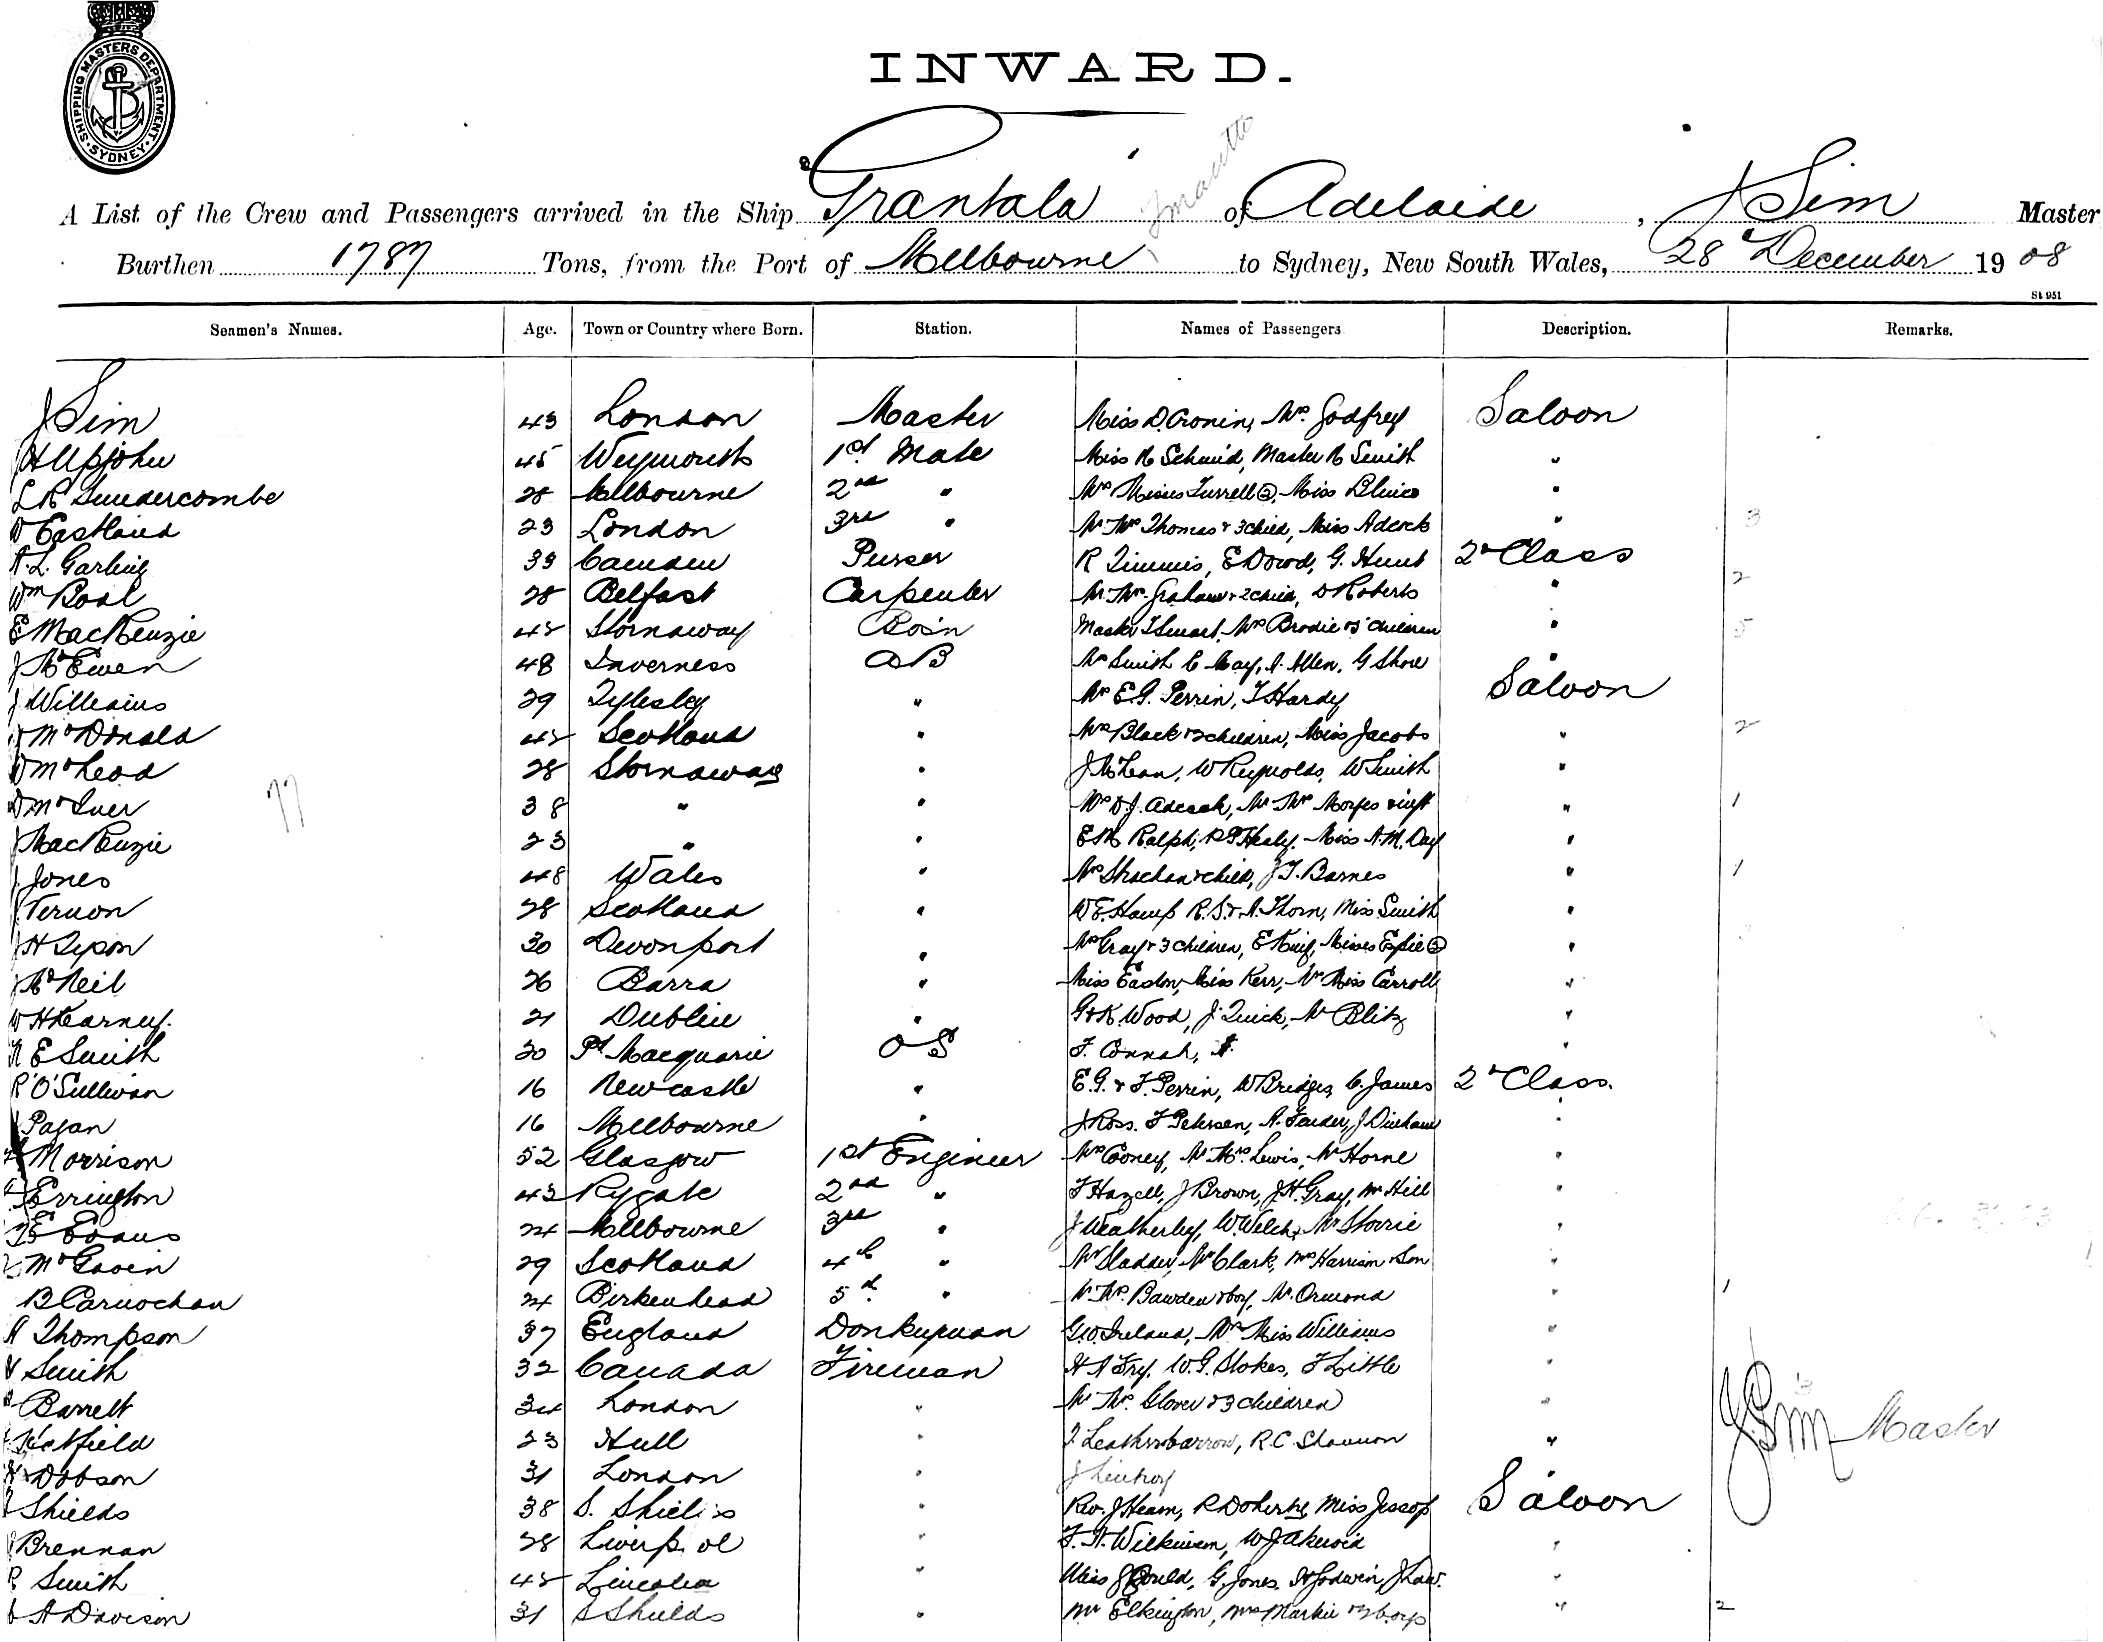 SHIPPING MASTERS DEPARTMENT SYDNEY
INWARD.
A List of the Crew and Passengers arrived in the Ship Grantala of Adelaide, J Sim Master
Burthen 1787 Tons, from the Port of Melbourne to Sydney, New South Wales, 28 December 1908
St 951
Seamen's Names. Age. Town or Country where Born. Station. Names of Passengers Description. Remarks.
J Sim 43 London Master Miss D. Cronin, Mrs Godfrey Saloon
H Upjohn 45 Weymouth 1st Mate Miss R Schmid, Master R Smith "
L R Sundercombe 28 Melbourne 2nd " Mrs Misses Turrell (2), Miss "
W Eastland 23 London 3rd " Mr Mrs Thomas & 3 child, Miss Adcock " 3
A. L. Garling 33 Camden Purser R Timmis, E Dowd, G. Hunt 2nd Class
Wm Boal 28 Belfast Carpenter Mr Mrs Graham & 2 child, D Roberts " 2
E MacKenzie Stornaway Bosn Master T Stuart, Mrs Brodie & 5 children " 5
J McEwen 48 Inverness AB Mr Smith C May, A. Allen, G Shore "
J Williams 29 Tylesley " Mr E. G. Perrin, T Hardy Saloon
McDonald Scotland " Mrs Black & 2 children, Miss Jacobs " 2
D McLeod 28 Stornaway " J McLean, W Reynolds, W Smith "
D McIver 38 " " Mrs D. J. Adcock, Mr Mrs Moyes & inft " 1
J MacKenzie 23 " " E M Ralph, R P Healy, Miss A. M. Day "
J Jones 48 Wales " Mrs Strachan & child, J T. Barnes " 1
J Vernon 28 Scotland " W E. Hamp R. S. & A. Thorn, Miss Smith "
J H Tyson 30 Devonport " Mrs Gray & 3 children, E King, Misses Espie (2) "
J McNeil 26 Barra " Miss Easton, Miss Kerr, Mr Miss Carroll "
W H Kearney. 21 Dublin " G & K. Wood, J. Quick, Mr Blitz "
E Smith 20 Pt Macquarie OS F. Connah, "
R O'Sullivan 16 Newcastle " E. G. & F. Perrin, W Bridges, C. James 2nd Class.
J Pagan 16 Melbourne " J Ross. F Petersen, A. J Dunham "
Morrison 52 Glasgow 1st Engineer Mrs Cooney, Mr Mrs Lewis, Mr Horne "
Errington 43 Rygate 2nd " F Hazell, J Brown, J. H. Gray, Mr Hill "
E Evans 24 Melbourne 3rd " J Weatherley, W. Welch, Mr Storrie "
McGavin 29 Scotland 4th " Mr Sladder, Mr Clark, Mrs Harrison & Son "
B Carnochan 24 Birkenhead 5th " Mr Mrs. Bawden & boy, Mr. Ormond " 1
A Thompson 37 England Donkeyman G. W. Ireland, Mr Miss Williams "
Smith 32 Canada Fireman H A Fry, W. G. Stokes, F Little "
Barrett 34 London " Mr Mrs. Glover & 3 children " 3
Hatfield 23 Hull " J Leatherbarrow, R. C. Shannon "
H Dobson 31 London " J
J Shields 38 S. Shields " Rev. J Hearn, R Doherty, Miss Jessop Saloon
J Brennan 28 Liverpool " F. A. Wilkinson, W J Akeroid "
R Smith Lincoln " Miss J Gould, G. Jones, H Godwin, J Law. "
A Davison 31 S Shields " Mr Elkington, Mrs Markie & 2 boys " 2
77
J Sim Master